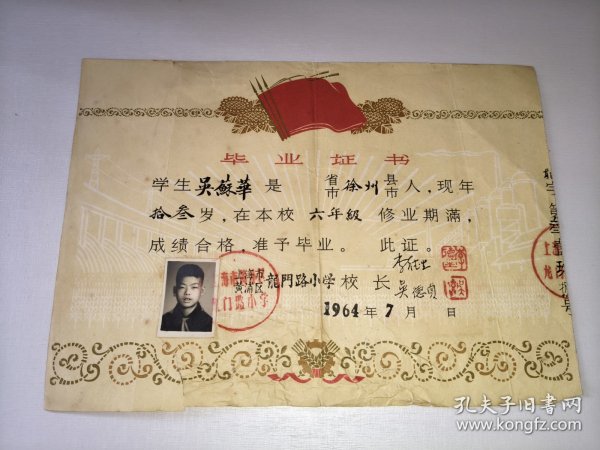 毕业证书
学生吴蘇華是 省市 徐州 县市 人，现年
拾叁岁，在本校六年級修业期满，
成绩合格，准予毕业。此证。
上海市
黄浦区 龍門路小学校长
吴德貞
1964年7月 日
孔夫子旧书网
www.kongfz.com